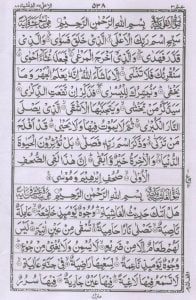 ٥٣٨
بِسْمِ اللهِ الرَّحْمٰنِ الرَّحِيْمِ
سَبِّحِ اسْمَ رَبِّكَ الْاَعْلَى الَّذِيْ خَلَقَ فَسَوّٰى وَالَّذِيْ
قَدَّرَ فَهَدٰى وَالَّذِيْٓ اَخْرَجَ الْمَرْعٰى فَجَعَلَهٗ غُثَآءً اَحْوٰى
سَنُقْرِئُكَ فَلَا تَنْسٰٓى اِلَّا مَا شَآءَ اللهُ اِنَّهٗ يَعْلَمُ الْجَهْرَ وَمَا
يَخْفٰى وَنُيَسِّرُكَ لِلْيُسْرٰى فَذَكِّرْ اِنْ نَّفَعَتِ الذِّكْرٰى
سَيَذَّكَّرُ مَنْ يَّخْشٰى وَيَتَجَنَّبُهَا الْاَشْقَى الَّذِيْ يَصْلَى
النَّارَ الْكُبْرٰى ثُمَّ لَا يَمُوْتُ فِيْهَا وَلَا يَحْيٰى قَدْ اَفْلَحَ
مَنْ تَزَكّٰى وَذَكَرَ اسْمَ رَبِّهٖ فَصَلّٰى بَلْ تُؤْثِرُوْنَ الْحَيٰوةَ
الدُّنْيَا وَالْاٰخِرَةُ خَيْرٌ وَّاَبْقٰى اِنَّ هٰذَا لَفِى الصُّحُفِ
الْاُوْلٰى صُحُفِ اِبْرٰهِيْمَ وَمُوْسٰى
بِسْمِ اللهِ الرَّحْمٰنِ الرَّحِيْمِ
هَلْ اَتٰىكَ حَدِيْثُ الْغَاشِيَةِ وُجُوْهٌ يَّوْمَئِذٍ خَاشِعَةٌ عَامِلَةٌ
نَّاصِبَةٌ تَصْلٰى نَارًا حَامِيَةً تُسْقٰى مِنْ عَيْنٍ اٰنِيَةٍ لَيْسَ
لَهُمْ طَعَامٌ اِلَّا مِنْ ضَرِيْعٍ لَّا يُسْمِنُ وَلَا يُغْنِيْ مِنْ جُوْعٍ
وُجُوْهٌ يَّوْمَئِذٍ نَّاعِمَةٌ لِّسَعْيِهَا رَاضِيَةٌ فِيْ جَنَّةٍ عَالِيَةٍ
لَّا تَسْمَعُ فِيْهَا لَاغِيَةً فِيْهَا عَيْنٌ جَارِيَةٌ فِيْهَا سُرُرٌ